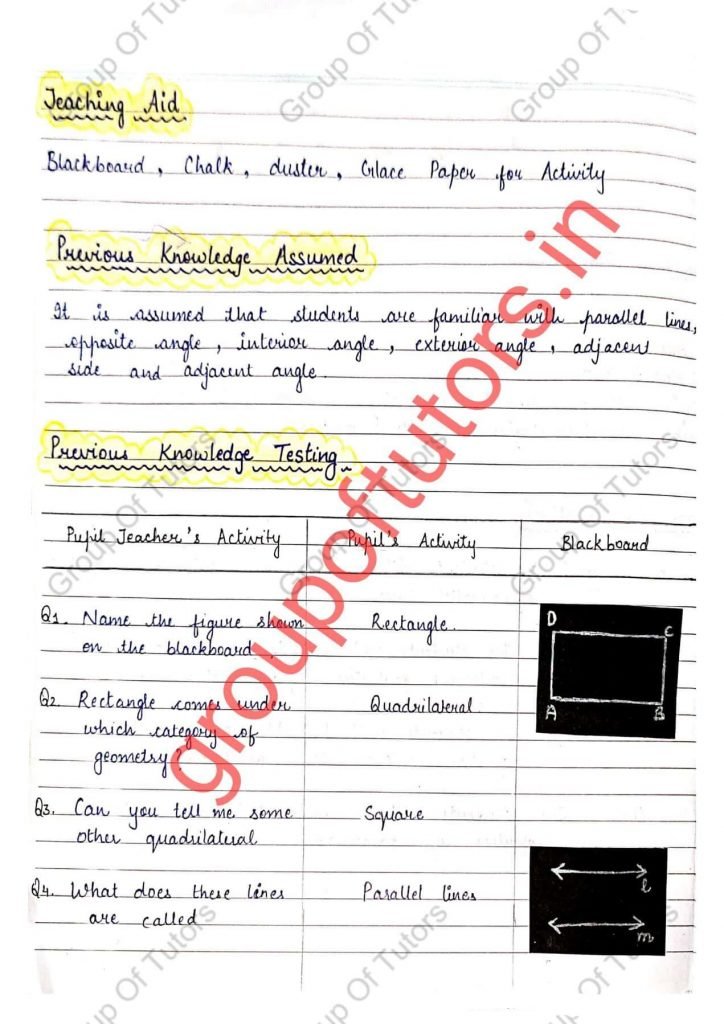 Group Of Tutors
Group Of T
Teaching Aid
Blackboard, Chalk, duster, Glace Paper for Activity
Previous Knowledge Assumed
It is assumed that students are familiar with parallel lines,
opposite angle, interior angle, exterior angle, adjacent
side and adjacent angle.
Previous Knowledge Testing
Group Of Tutors
Group Of Tutors
Group Of Tutors
groupoftutors.in
Pupil Teacher's Activity Pupil's Activity Blackboard
Q1. Name the figure shown Rectangle.
on the blackboard.
D C
A B
Q2. Rectangle comes under Quadrilateral
which category of
geometry?
Q3. Can you tell me some Square
other quadrilateral
Q4. What does these lines Parallel lines
are called
l
m
Group Of Tutors
Group Of Tutors
Group Of Tutors